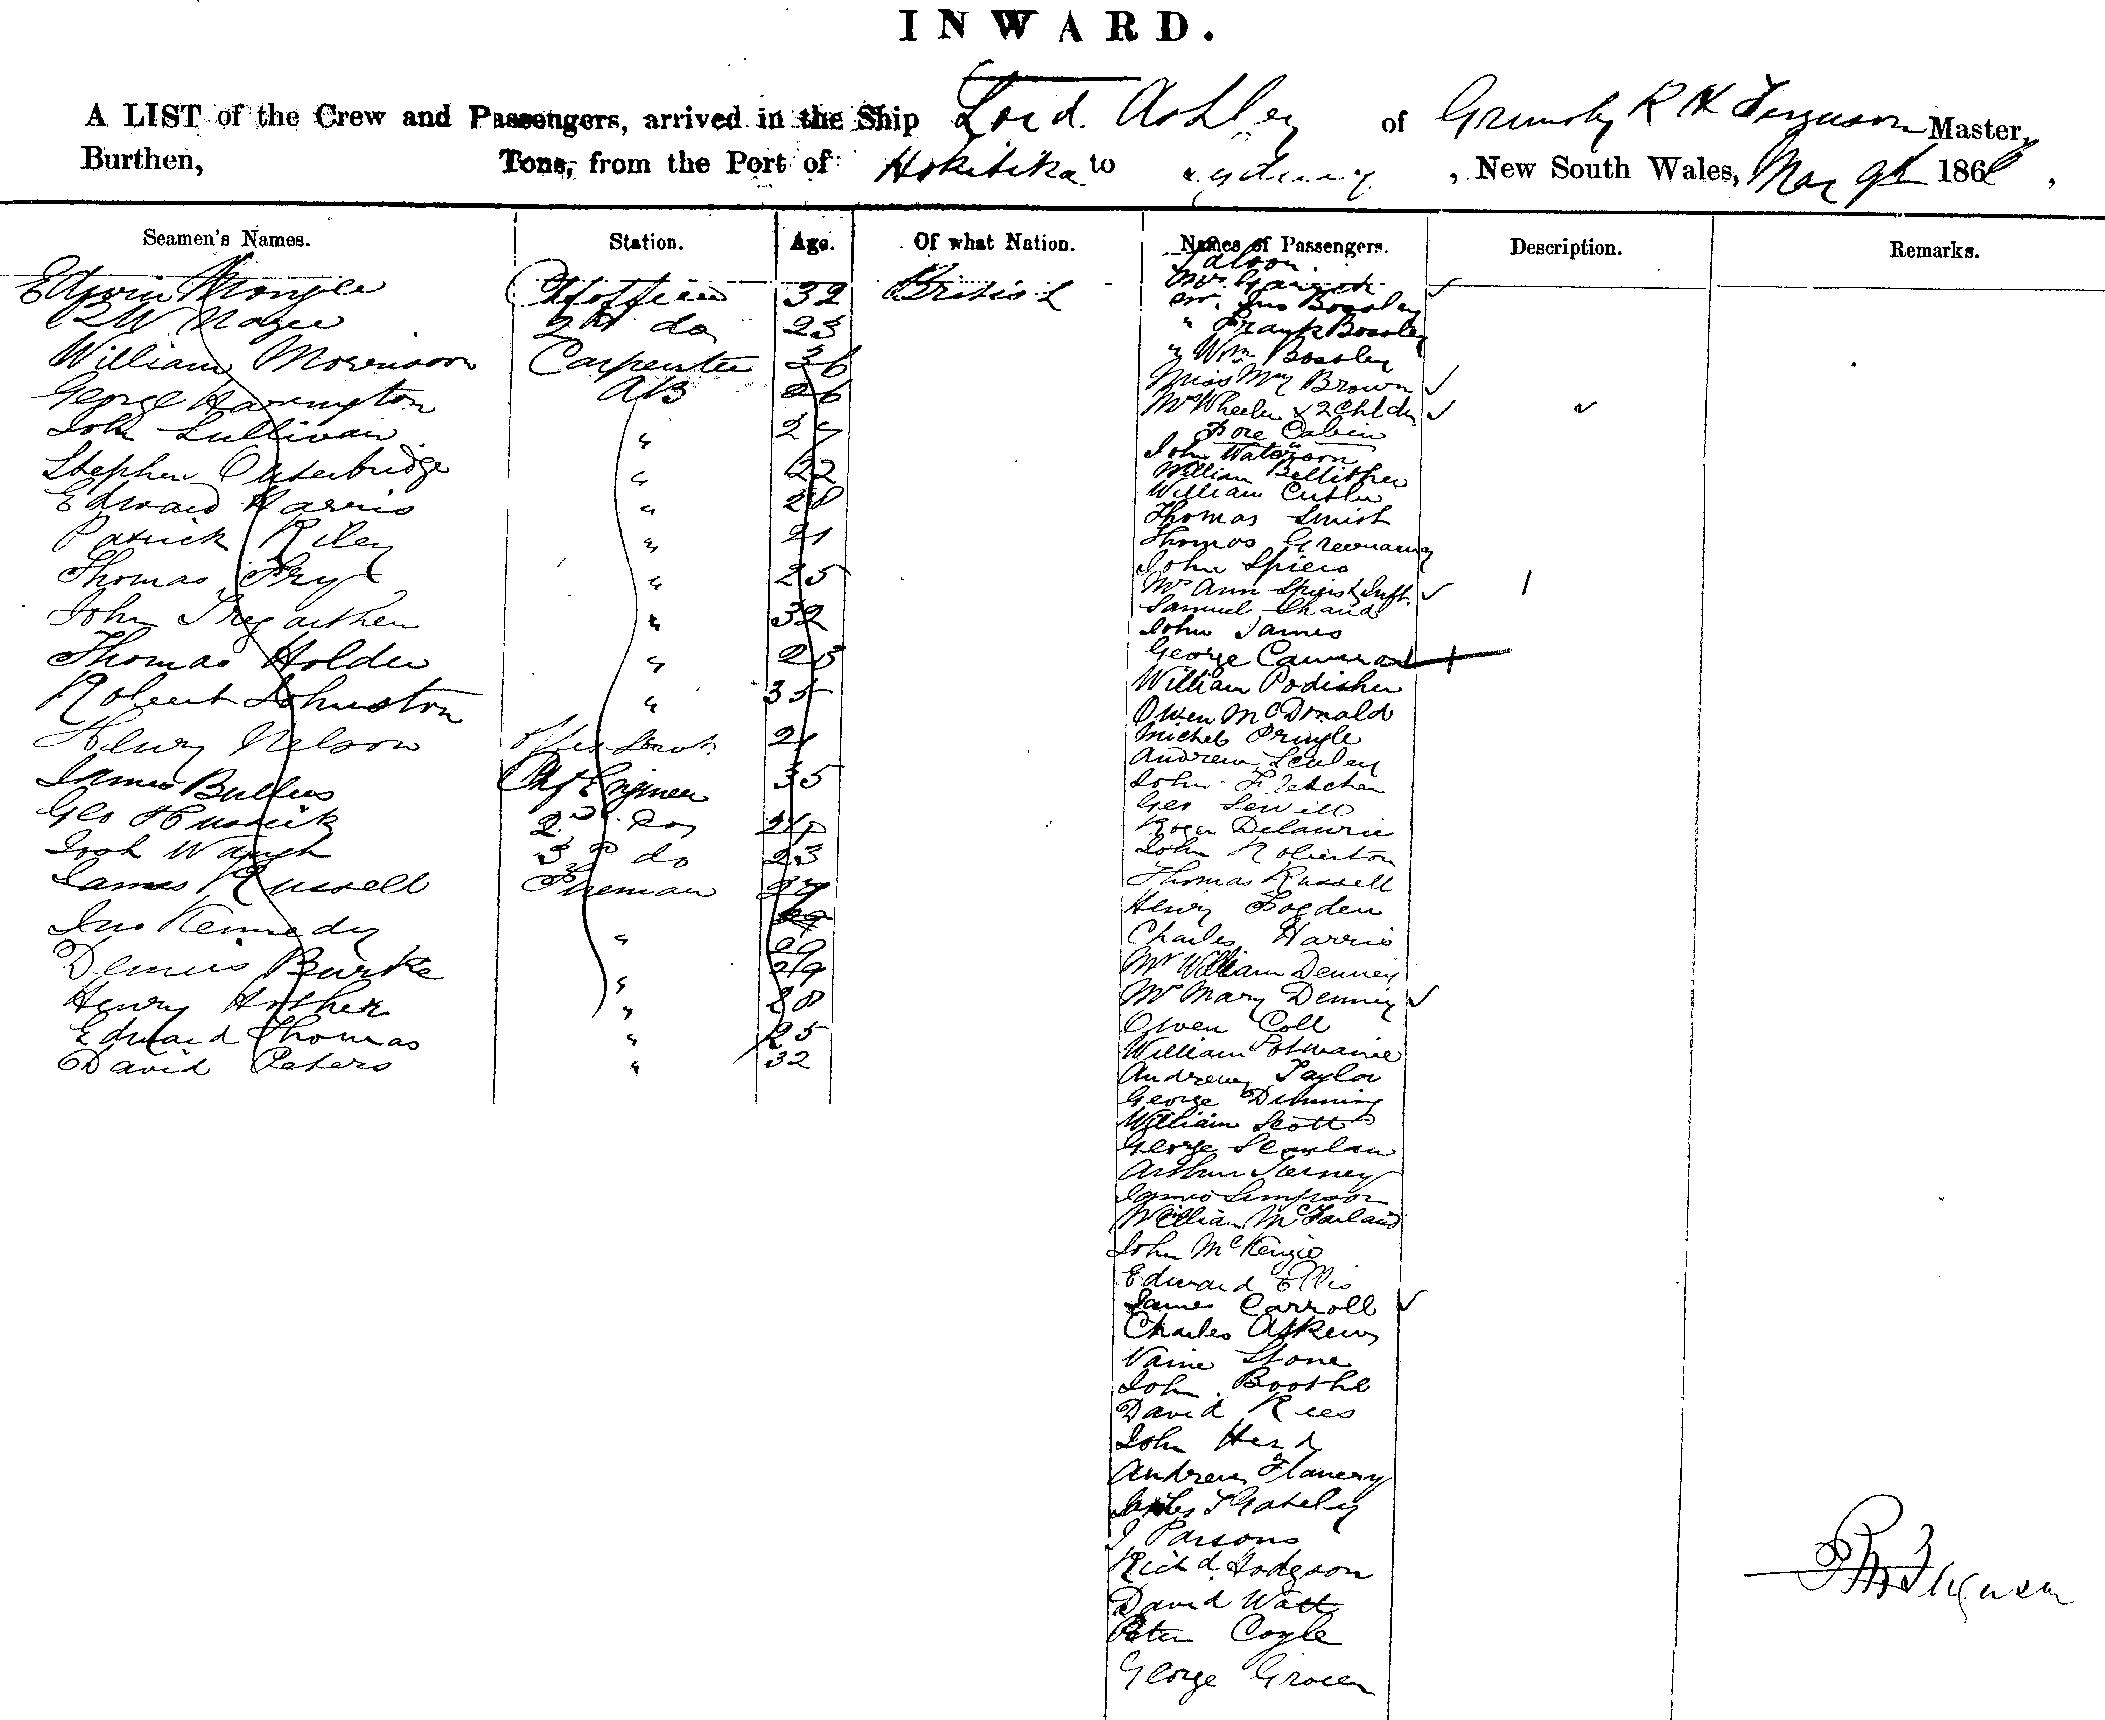 INWARD.
A LIST of the Crew and Passengers, arrived in the Ship Lord Ashley of Grimsby R H Ferguson Master,
Burthen, Tons, from the Port of Hokitika to Sydney, New South Wales, May 9th 186
Seamen's Names. Station. Age. Of what Nation. Names of Passengers. Description. Remarks.
Saloon
Edwin Chf officer 32 British
Mr. Jno Bossley
Magee 2nd do 23
" Frank Bossley
William Morrison Carpenter 36
" Wm Bossley
Miss My Brown
George Harrington AB 26
Mrs Wheeler & 2 Chldn
John Sullivan " 27
Fore Cabin
John Waterson
Stephen Outerbridge " 22
William
Edward Harris " 28
William Cutler
Thomas Smith
Patrick Riley " 21
Thomas Greenaway
John Spiers
Thomas Fry " 25
Mrs Ann Spiers & Inft.
Samuel Shand
John Tregarthen " 32
John James
George Cameron
Thomas Holder " 25
William Podisher
Robert Johnston " 35
Owen McDonald
Michel Pringle
Henry Nelson 21
Andrew
James Bullers Chf Engineer 35
John Fletcher
Geo Sewill
Geo 2nd do
Roger Delaurie
Josh Waugh 3rd do 23
John Roberton
James Russell Fireman 27
Thomas Russell
Henry Fogden
Jno Kennedy " 29
Charles Harris
Dennis Burke " 29
Mr William Denney
Henry Hosher " 28
Mrs Mary Denney
Edward Thomas " 25
Owen Coll
David Peters " 32
William Potmaine
Andrew Taylor
George Dunning
William Scott
George Scanlan
Arthur Tierney
James Simpson
William McFarland
John McKenzie
Edward Ellis
James Carroll
Charles Askew
Vaine Stone
John Boothe
David Rees
John Herd
Andrew Flanery
Gately
J Parsons
Richd. Hodgson
David Watt
Peter Coyle
George Grocer
R H Ferguson